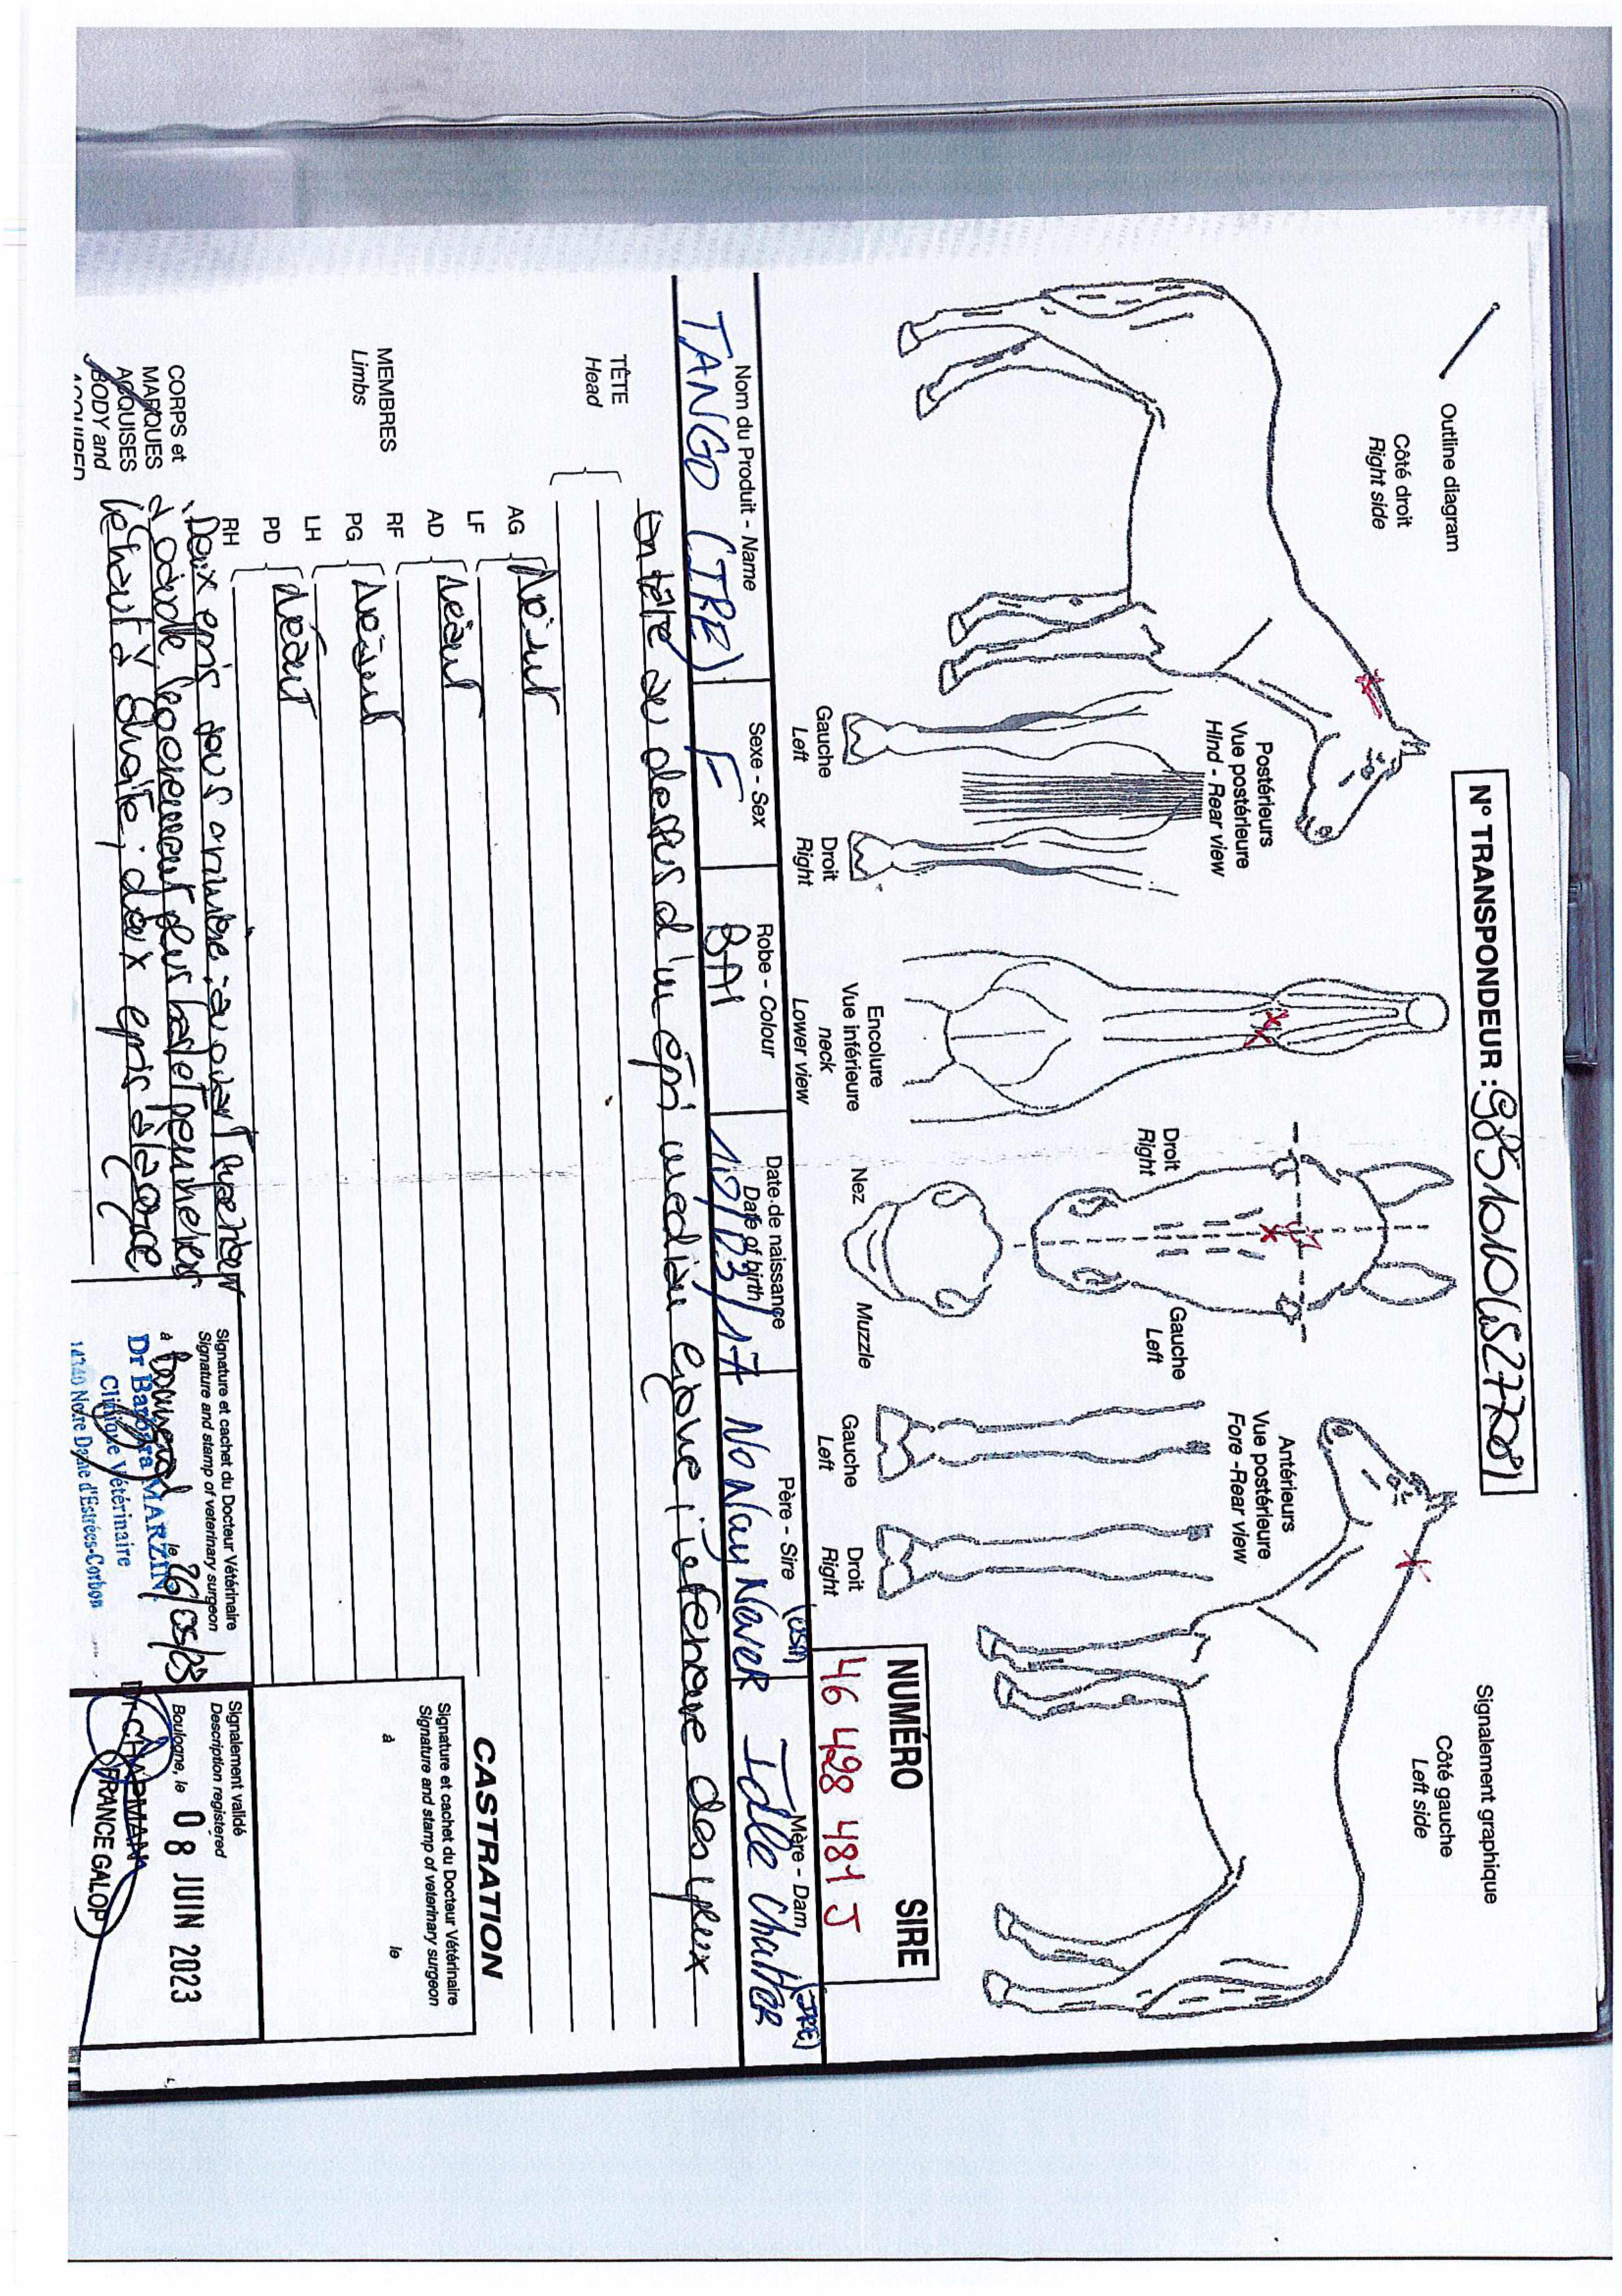 Outline diagram
Signalement graphique
N° TRANSPONDEUR :
Côté droit
Right side
Côté gauche
Left side
Postérieurs
Vue postérieure
Hind - Rear view
Droit
Right
Gauche
Left
Antérieurs
Vue postérieure
Fore - Rear view
Gauche
Left
Droit
Right
Encolure
Vue inférieure
neck
Lower view
Nez
Muzzle
Gauche
Left
Droit
Right
NUMÉRO SIRE
46 428 481 J
Nom du Produit - Name
TANGO (IRE)
Sexe - Sex
F
Robe - Colour
BAI
Date de naissance
Date of birth
12/03/17
Père - Sire
No Nay Never (USA)
Mère - Dam
Idle Chatter (IRE)
TÊTE
Head
en tête au dessus d'un épi médian ligne inférieure des yeux
MEMBRES
Limbs
AG
LF
Néant
AD
RF
Néant
PG
LH
Néant
PD
RH
néant
CORPS et
MARQUES
ACQUISES
BODY and
ACQUIRED
Deux épis sous crinière: au quart supérieur
à gauche légèrement plus bas et penchés
le haut à droite; deux épis à la gorge
CASTRATION
Signature et cachet du Docteur Vétérinaire
Signature and stamp of veterinary surgeon
à le
Signature et cachet du Docteur Vétérinaire
Signature and stamp of veterinary surgeon
à le 26/05/23
Dr Barbara MARZIN
Clinique Vétérinaire
14340 Notre Dame d'Estrées-Corbon
Signalement validé
Description registered
Boulogne, le 08 JUIN 2023
Dr CHAPMAN
FRANCE GALOP